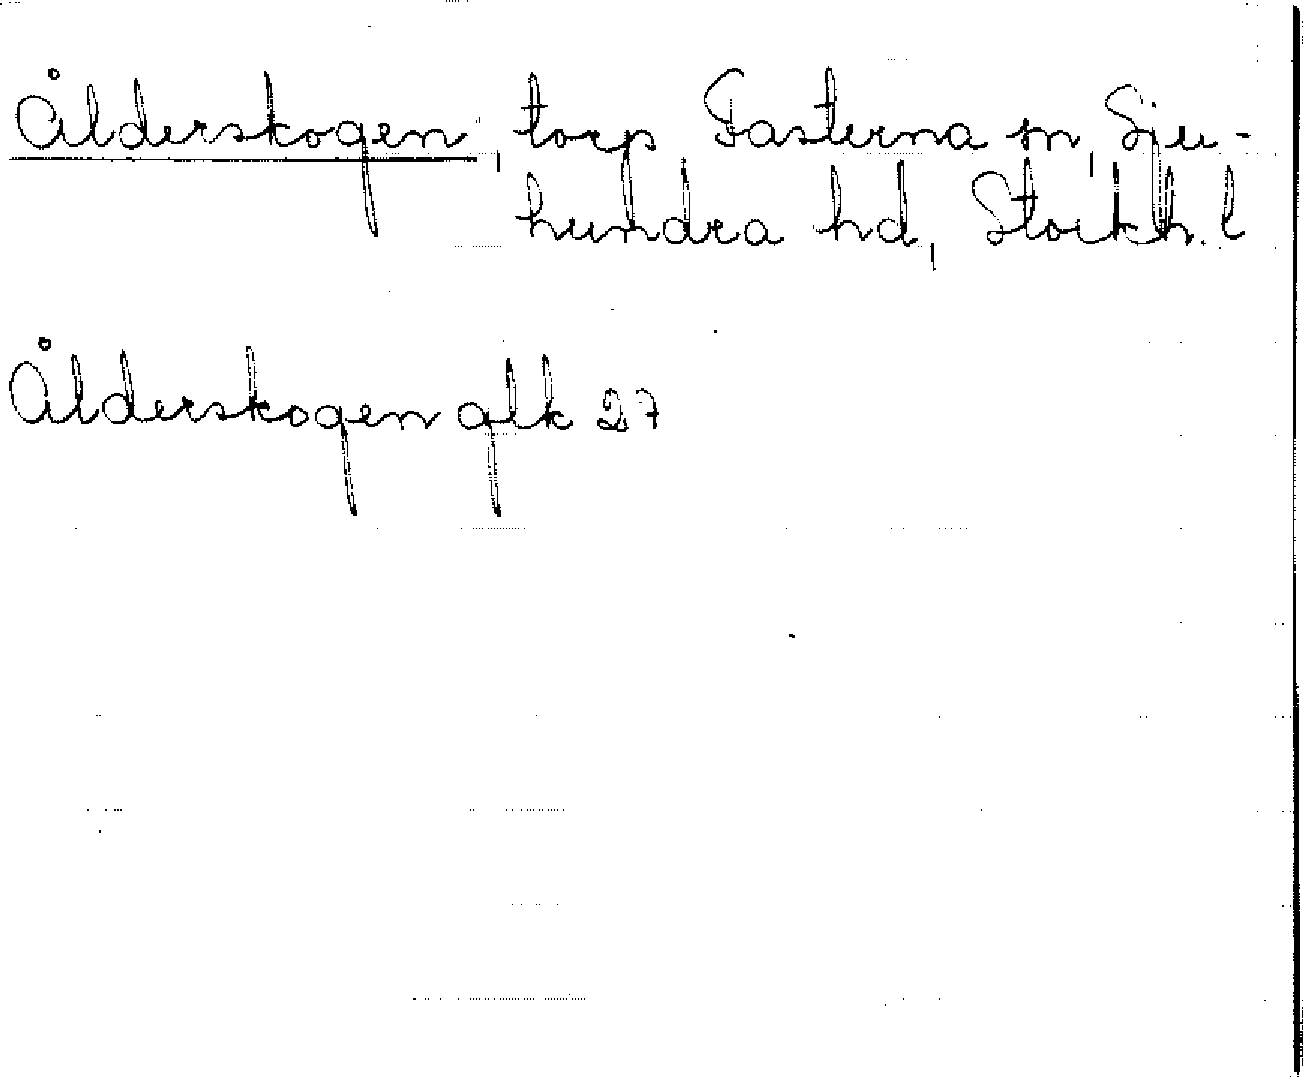 Ålderskogen, torp, Fasterna sn, Sju-
hundra hd, Stockh. l
Ålderskogen glk 27